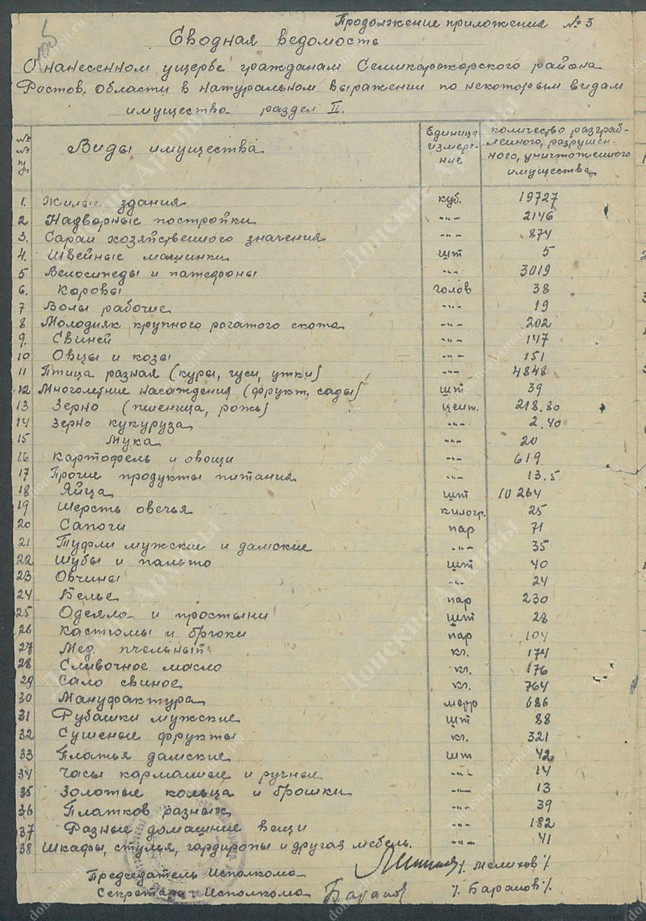 Продолжение приложения № 3
Сводная ведомость
О нанесенном ущербе гражданам Семикаракорского района
Ростов. области в натуральном выражении по некоторым видам
имущества раздел II.
№№ Виды имущества Единица измерение количество разграбленного, разрушенного, уничтоженного имущества
1. Жилые здания куб. 19727
2 Надворные постройки -"- 2146
3. Сараи хозяйственного значения -"- 874
4. Швейные машинки шт 5
5 Велосипеды и патефоны -"- 3019
6. Коровы голов 38
7 Волы рабочие -"- 19
8 Молодняк крупного рогатого скота -"- 202
9. Свиней -"- 147
10 Овцы и козы -"- 151
11 Птица разная (куры, гуси, утки) -"- 4848
12 Многолетние насаждения (фрукт. сады) шт 39
13 Зерно (пшеница, рожь) цент. 218.80
14 Зерно кукуруза -"- 2.40
15 Мука -"- 20
16 Картофель и овощи -"- 619
17 Прочие продукты питания -"- 13.5
18 Яйца шт 10264
19 Шерсть овечья килогр. 25
20 Сапоги пар 71
21 Туфли мужские и дамские -"- 35
22 Шубы и пальто шт 40
23 Овчины -"- 24
24 Белье пар 230
25 Одеяла и простыни шт 28
26 Костюмы и брюки пар 104
27 Мед пчельный кг. 174
28 Сливочное масло кг. 176
29 Сало свиное кг. 764
30 Мануфактура метр 686
31 Рубашки мужские шт 88
32 Сушеные фрукты кг. 321
33 Платья дамские шт 42
34 Часы карманные и ручные -"- 14
35 Золотые кольца и брошки -"- 13
36 Платков разных -"- 39
37 Разные домашние вещи -"- 182
38 Шкафы, стулья, гардиропы и другая мебель. -"- 41
Председатель Исполкома
Секретарь Исполкома Баранов /. Баранов /.